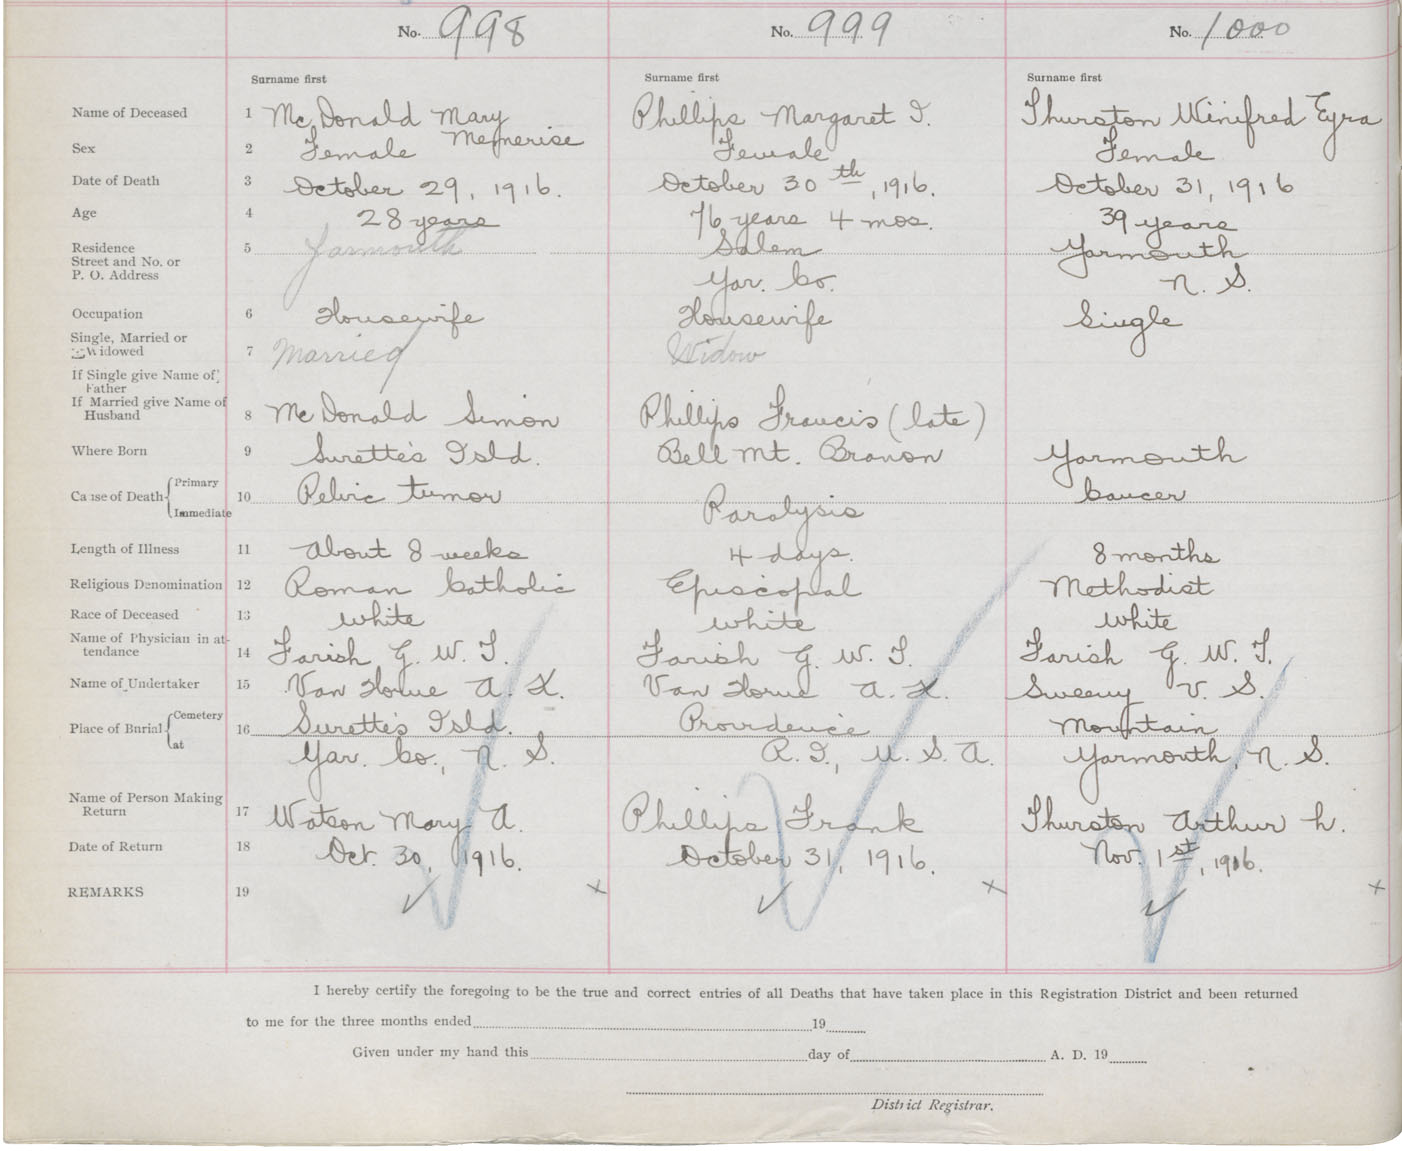 No. 998 No. 999 No. 1000
Surname first Surname first Surname first
Name of Deceased 1 McDonald Mary Phillips Margaret I. Thurston Winifred Eyra
Sex 2 Female Female Female
Date of Death 3 October 29, 1916. October 30th, 1916. October 31, 1916
Age 4 28 years 76 years 4 mos. 39 years
Residence 5 Yarmouth Salem Yarmouth
Street and No. or
P. O. Address Yar. Co. N. S.
Occupation 6 Housewife Housewife Single
Single, Married or
Widowed 7 Married Widow
If Single give Name of
Father
If Married give Name of
Husband 8 McDonald Simon Phillips Francis (late)
Where Born 9 Surette's Isld. Bell Mt. Yarmouth
Cause of Death Primary 10 Pelvic tumor Cancer
Immediate Paralysis
Length of Illness 11 About 8 weeks 4 days. 8 months
Religious Denomination 12 Roman Catholic Episcopal Methodist
Race of Deceased 13 white white white
Name of Physician in at-
tendance 14 Farish G. W. T. Farish G. W. T. Farish G. W. T.
Name of Undertaker 15 Van Horne A. K. Van Horne A. K. Sweeny V. S.
Place of Burial Cemetery 16 Surette's Isld. Providence Mountain
at Yar. Co., N. S. R. I., U. S. A. Yarmouth, N. S.
Name of Person Making
Return 17 Watson Mary A. Phillips Frank Thurston Arthur h.
Date of Return 18 Oct. 30, 1916. October 31, 1916. Nov. 1st, 1916.
REMARKS 19
I hereby certify the foregoing to be the true and correct entries of all Deaths that have taken place in this Registration District and been returned
to me for the three months ended 19
Given under my hand this day of A. D. 19
District Registrar.